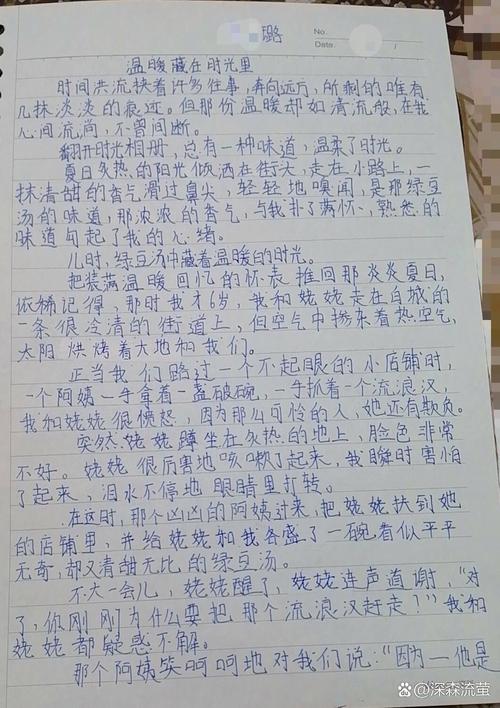 璐
No.
Date
温暖藏在时光里
时间洪流挟着许多往事，奔向远方，所剩的唯有
几抹淡淡的痕迹。但那份温暖却如清流般，在我
心间流淌，不曾间断。
翻开时光相册，总有一种味道，温柔了时光。
夏日炙热的阳光倾洒在街头，走在小路上，一
抹清甜的香气滑过鼻尖，轻轻地嗅闻，是那绿豆
汤的味道，那浓浓的香气，与我扑了满怀，熟悉的
味道勾起了我的心绪。
儿时，绿豆汤中藏着温暖的时光。
把装满温暖回忆的怀表推回那炎炎夏日，
依稀记得，那时我才6岁，我和姥姥走在白城的
一条很冷清的街道上，但空气中掺杂着热空气，
太阳烘烤着大地和我们。
正当我们路过一个不起眼的小店铺时，
一个阿姨一手拿着一盏破碗，一手抓着一个流浪汉，
我和姥姥很愤怒，因为那么可怜的人，她还有欺负。
突然姥姥蹲坐在炙热的地上，脸色非常
不好。姥姥很厉害地咳嗽了起来，我瞬时害怕
了起来，泪水不停地眼睛里打转。
在这时，那个凶凶的阿姨过来，把姥姥扶到她
的店铺里，并给姥姥和我各盛了一碗看似平平
无奇，却又清甜无比的绿豆汤。
不大一会儿，姥姥醒了，姥姥连声道谢，“对
了，你刚刚为什么要把那个流浪汉赶走？”我和
姥姥都疑惑不解。
那个阿姨笑呵呵地对我们说：“因为一他是
@深森流萤